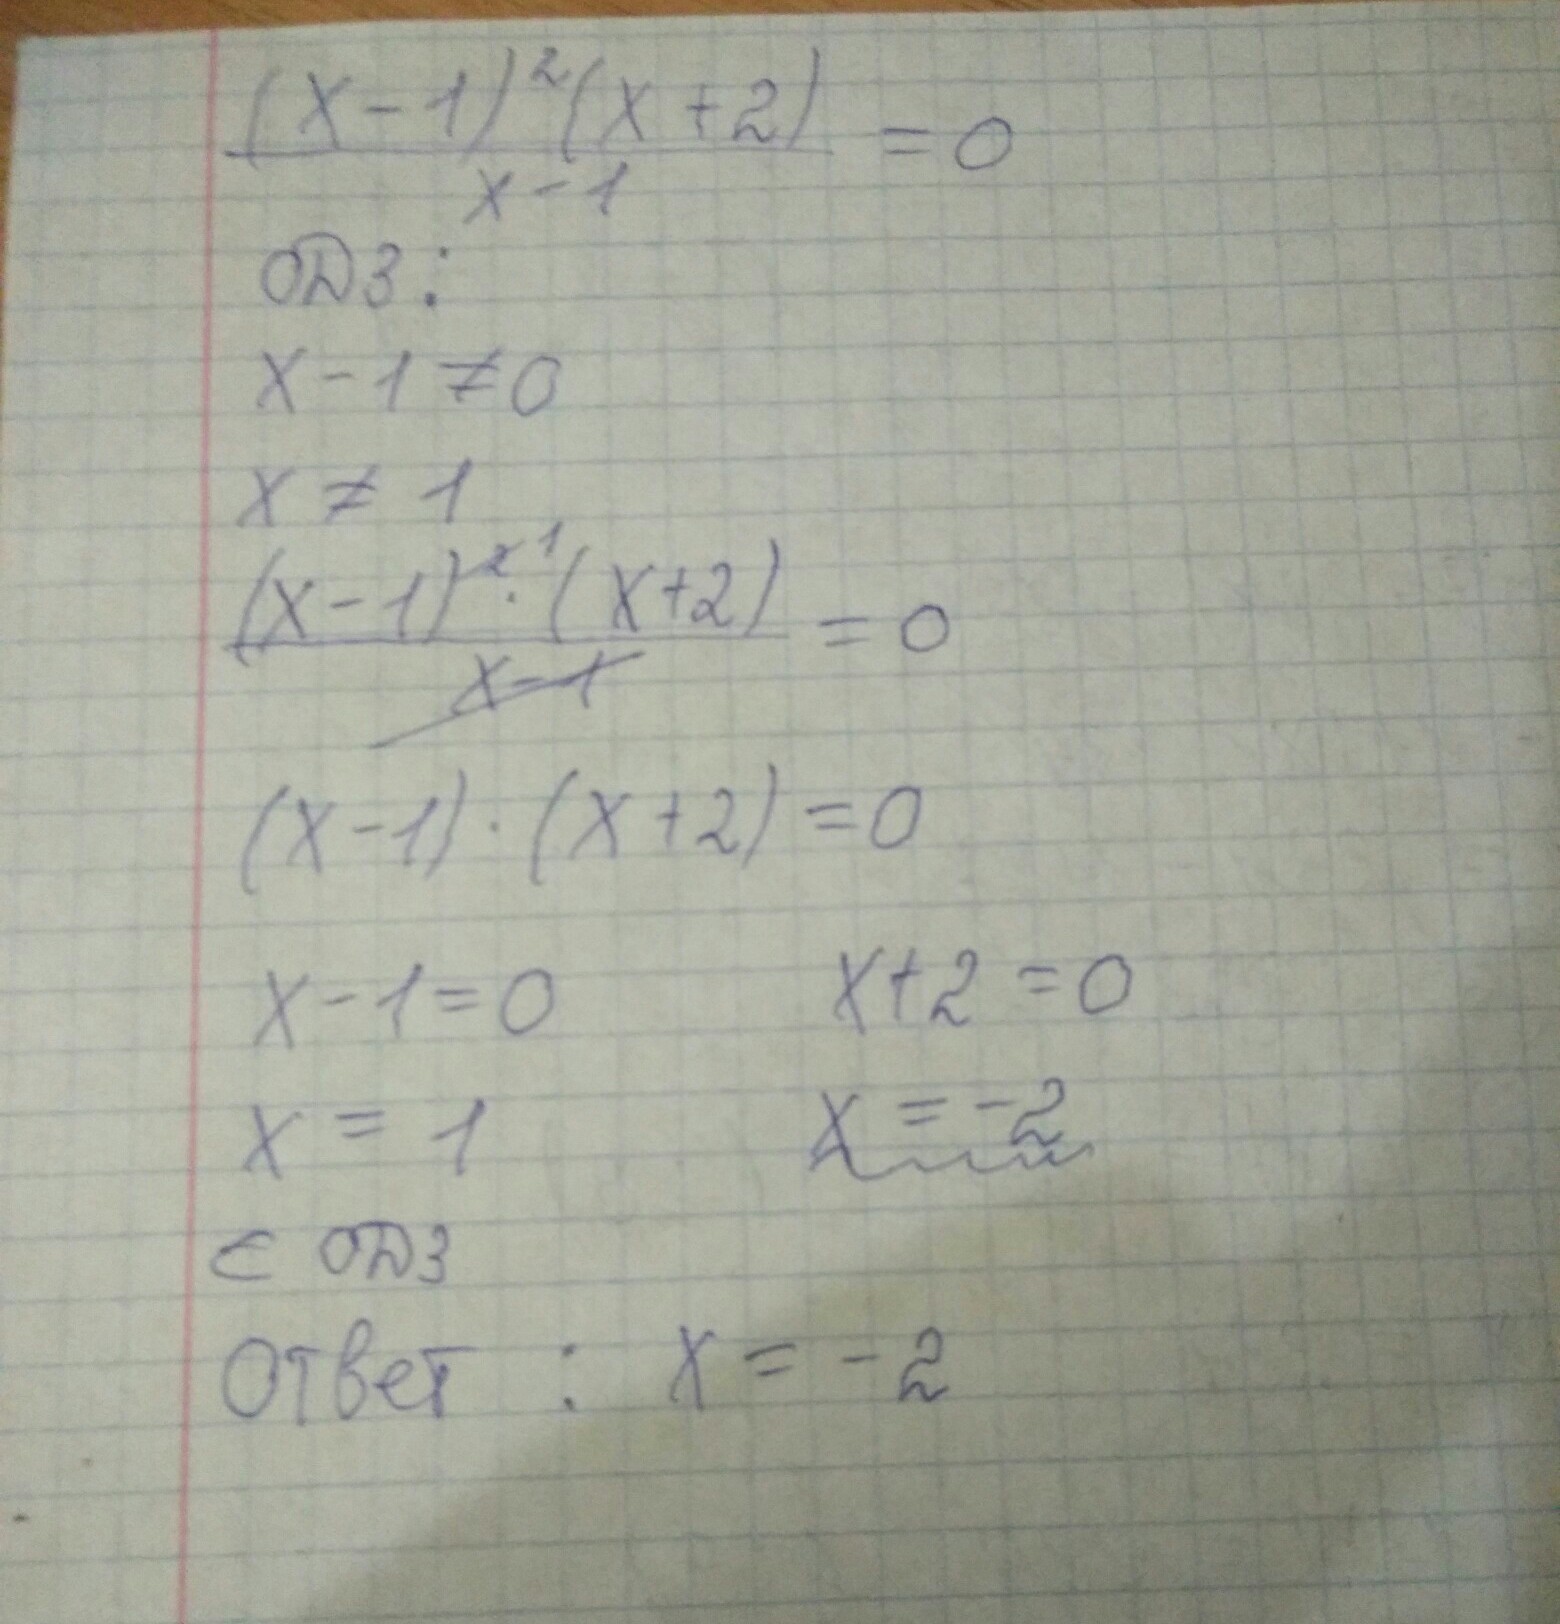 (x-1)²(x+2)/x-1 = 0
ОДЗ:
x-1≠0
x ≠ 1
(x-1)²¹·(x+2)/x-1 = 0
(x-1)·(x+2)=0
x-1=0 x+2=0
x = 1 x=-2
∈ ОДЗ
Ответ : x = -2